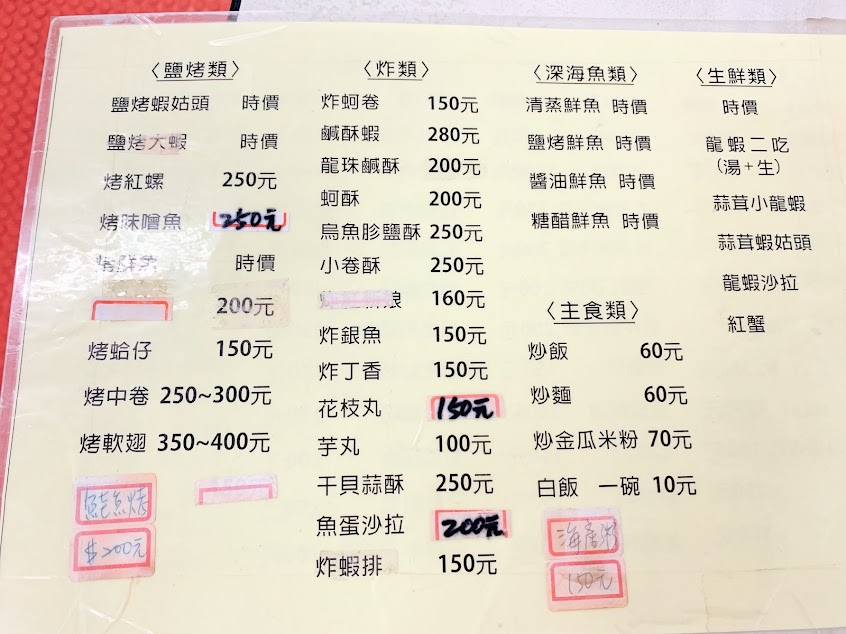 〈鹽烤類〉
鹽烤蝦姑頭 時價
鹽烤大蝦 時價
烤紅螺 250元
烤味噌魚 250元
烤鮮魚 時價
200元
烤蛤仔 150元
烤中卷 250~300元
烤軟翅 350~400元
$200元
〈炸類〉
炸蚵卷 150元
鹹酥蝦 280元
龍珠鹹酥 200元
蚵酥 200元
烏魚胗鹽酥 250元
小卷酥 250元
160元
炸銀魚 150元
炸丁香 150元
花枝丸 150元
芋丸 100元
干貝蒜酥 250元
魚蛋沙拉 200元
炸蝦排 150元
〈深海魚類〉
清蒸鮮魚 時價
鹽烤鮮魚 時價
醬油鮮魚 時價
糖醋鮮魚 時價
〈主食類〉
炒飯 60元
炒麵 60元
炒金瓜米粉 70元
白飯 一碗 10元
海產粥
150元
〈生鮮類〉
時價
龍蝦二吃
(湯+生)
蒜茸小龍蝦
蒜茸蝦姑頭
龍蝦沙拉
紅蟹